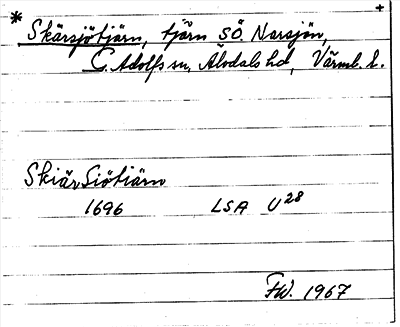 * Skärsjötjärn, tjärn SÖ Narsjön, +
G. Adolfs sn, Älvdals hd, Värml. l.
Skiär Siötiärn
1696 LSA U28
FW. 1967